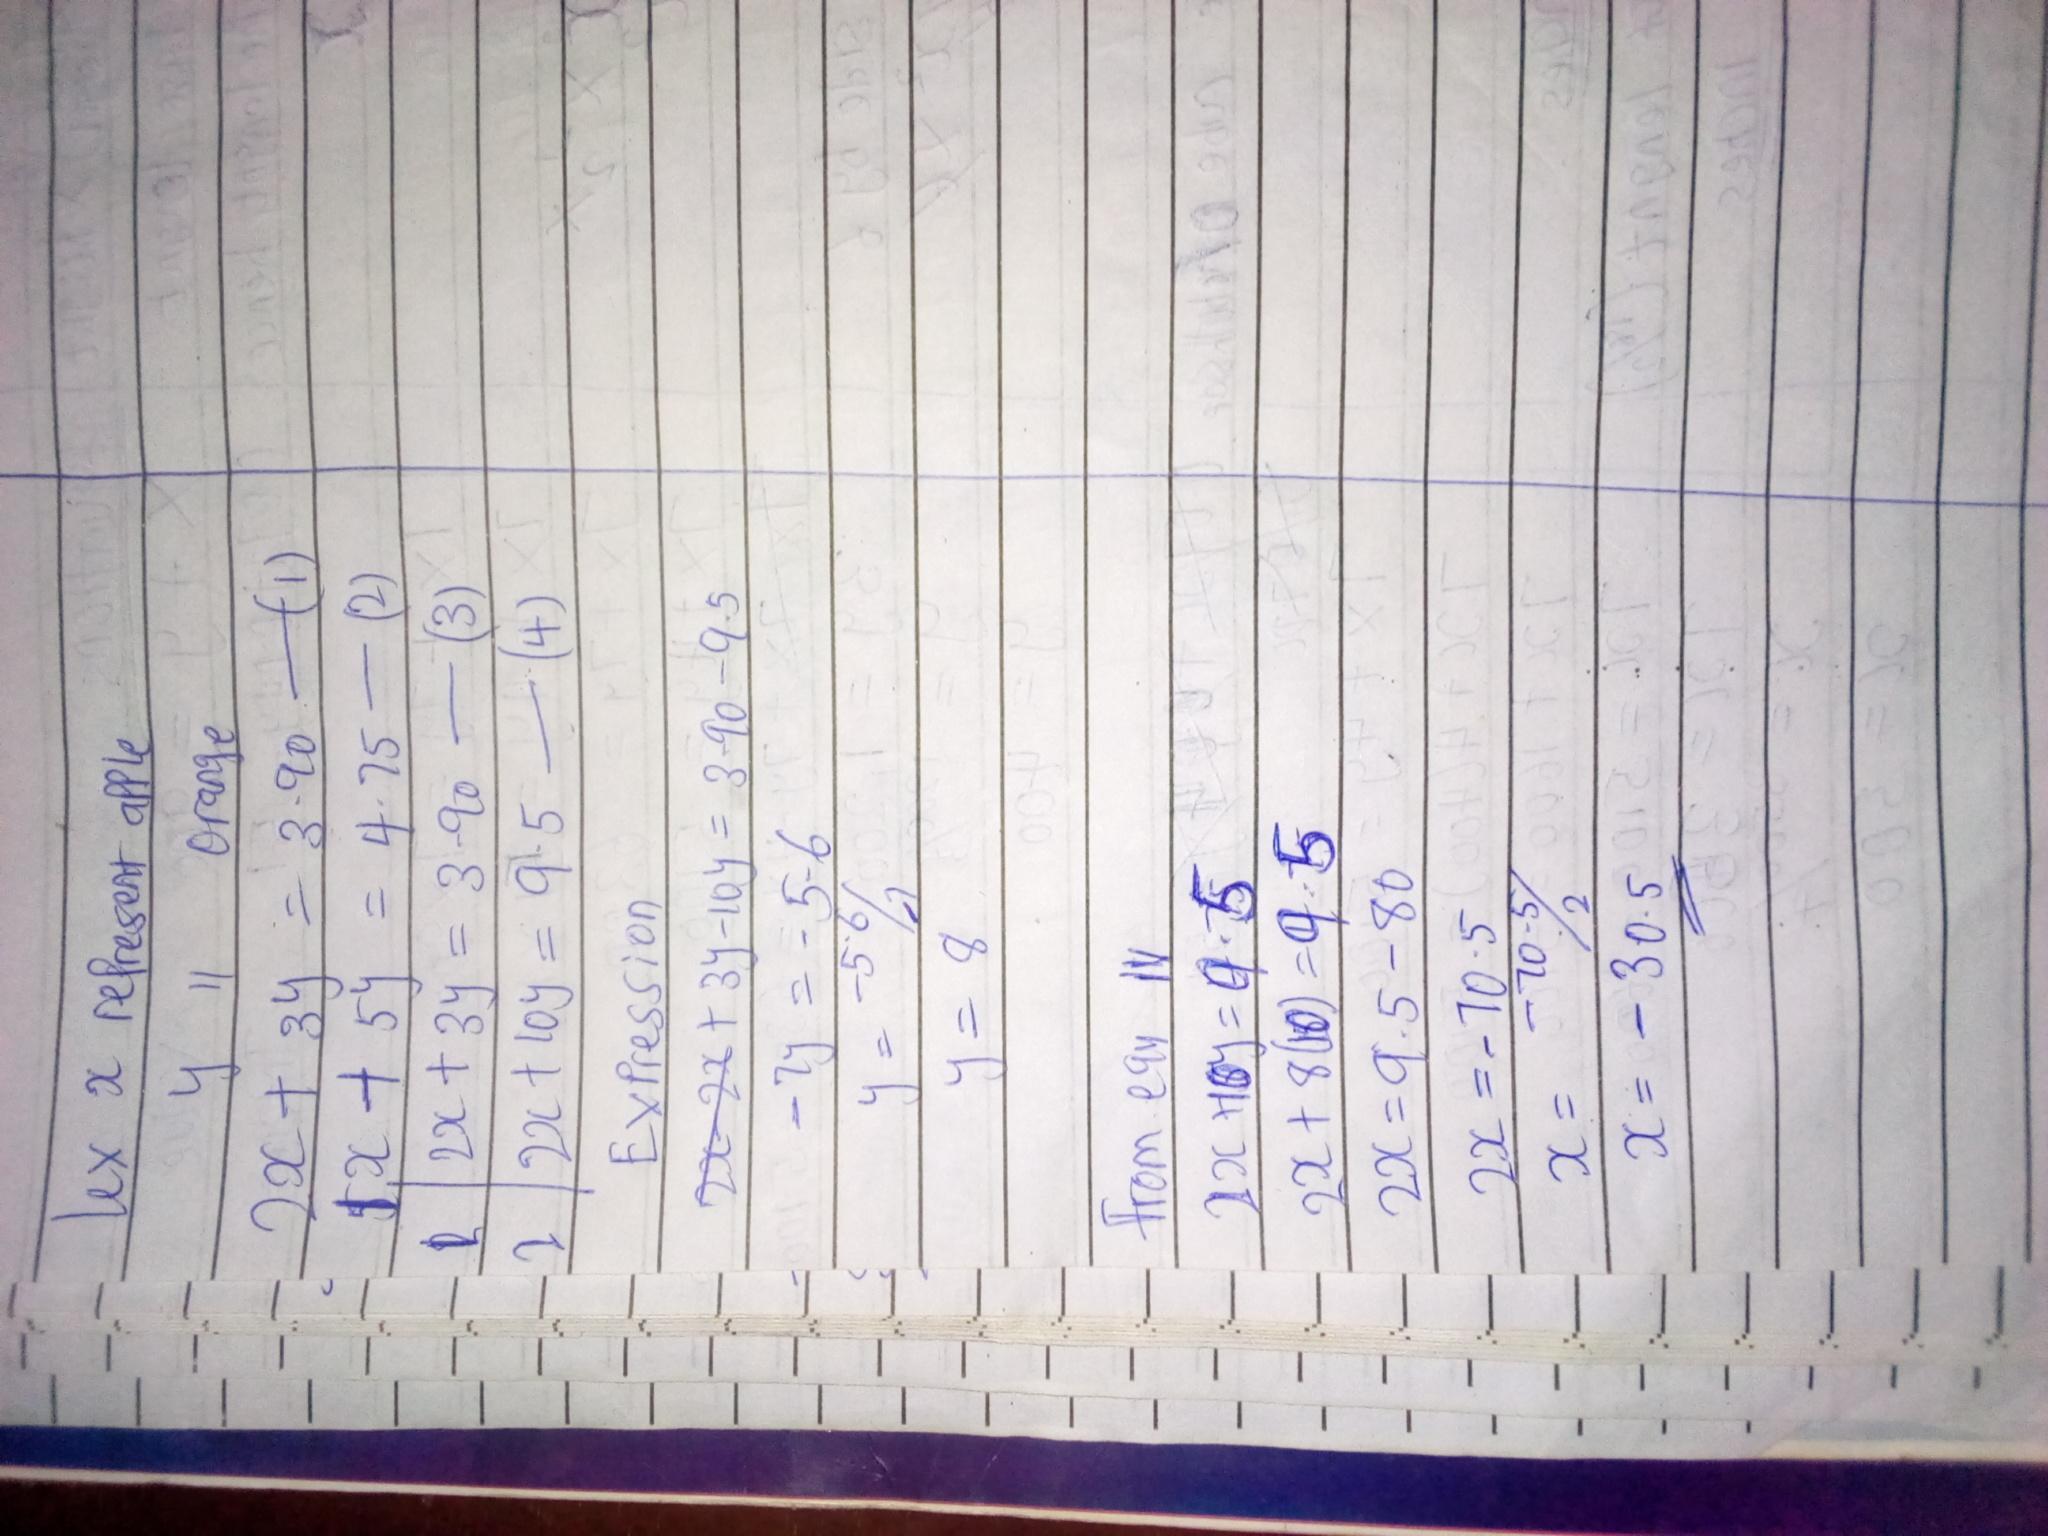 lex x represent apple
y " orange
2x + 3y = 3.90 — (1)
1x + 5y = 4.75 — (2)
1 | 2x + 3y = 3.90 — (3)
2 | 2x + 10y = 9.5 — (4)
Expression
2x - 2x + 3y - 10y = 3.90 - 9.5
-7y = -5.6
y = -5.6/-7
y = 8
From eqn IV
2x + 10y = 9.5
2x + 8(10) = 9.5
2x = 9.5 - 80
2x = -70.5
x = -70.5/2
x = -30.5